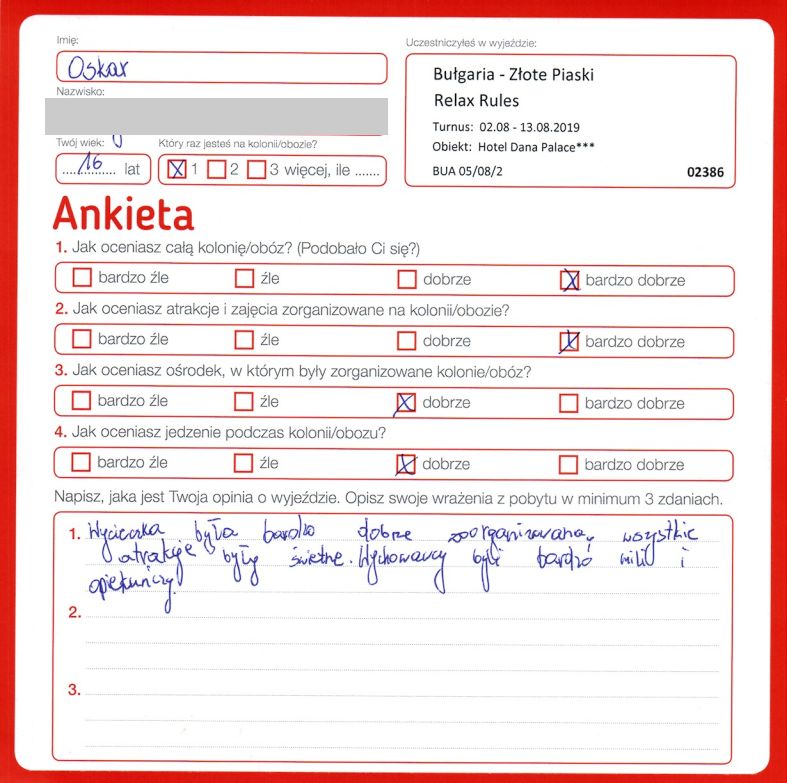 Imię:
Oskar
Uczestniczyłeś w wyjeździe:
Bułgaria - Złote Piaski
Relax Rules
Turnus: 02.08 - 13.08.2019
Obiekt: Hotel Dana Palace***
BUA 05/08/2
02386
Nazwisko:
Twój wiek:
16 lat
Który raz jesteś na kolonii/obozie?
X 1 2 3 więcej, ile .......
Ankieta
1. Jak oceniasz całą kolonię/obóz? (Podobało Ci się?)
bardzo źle źle dobrze X bardzo dobrze
2. Jak oceniasz atrakcje i zajęcia zorganizowane na kolonii/obozie?
bardzo źle źle dobrze X bardzo dobrze
3. Jak oceniasz ośrodek, w którym były zorganizowane kolonie/obóz?
bardzo źle źle X dobrze bardzo dobrze
4. Jak oceniasz jedzenie podczas kolonii/obozu?
bardzo źle źle X dobrze bardzo dobrze
Napisz, jaka jest Twoja opinia o wyjeździe. Opisz swoje wrażenia z pobytu w minimum 3 zdaniach.
1. Wycieczka była bardzo dobrze zoorganizowana, wszystkie
atrakcje były świetne. Wychowawcy byli bardzo mili i
opiekuńczy.
2.
3.